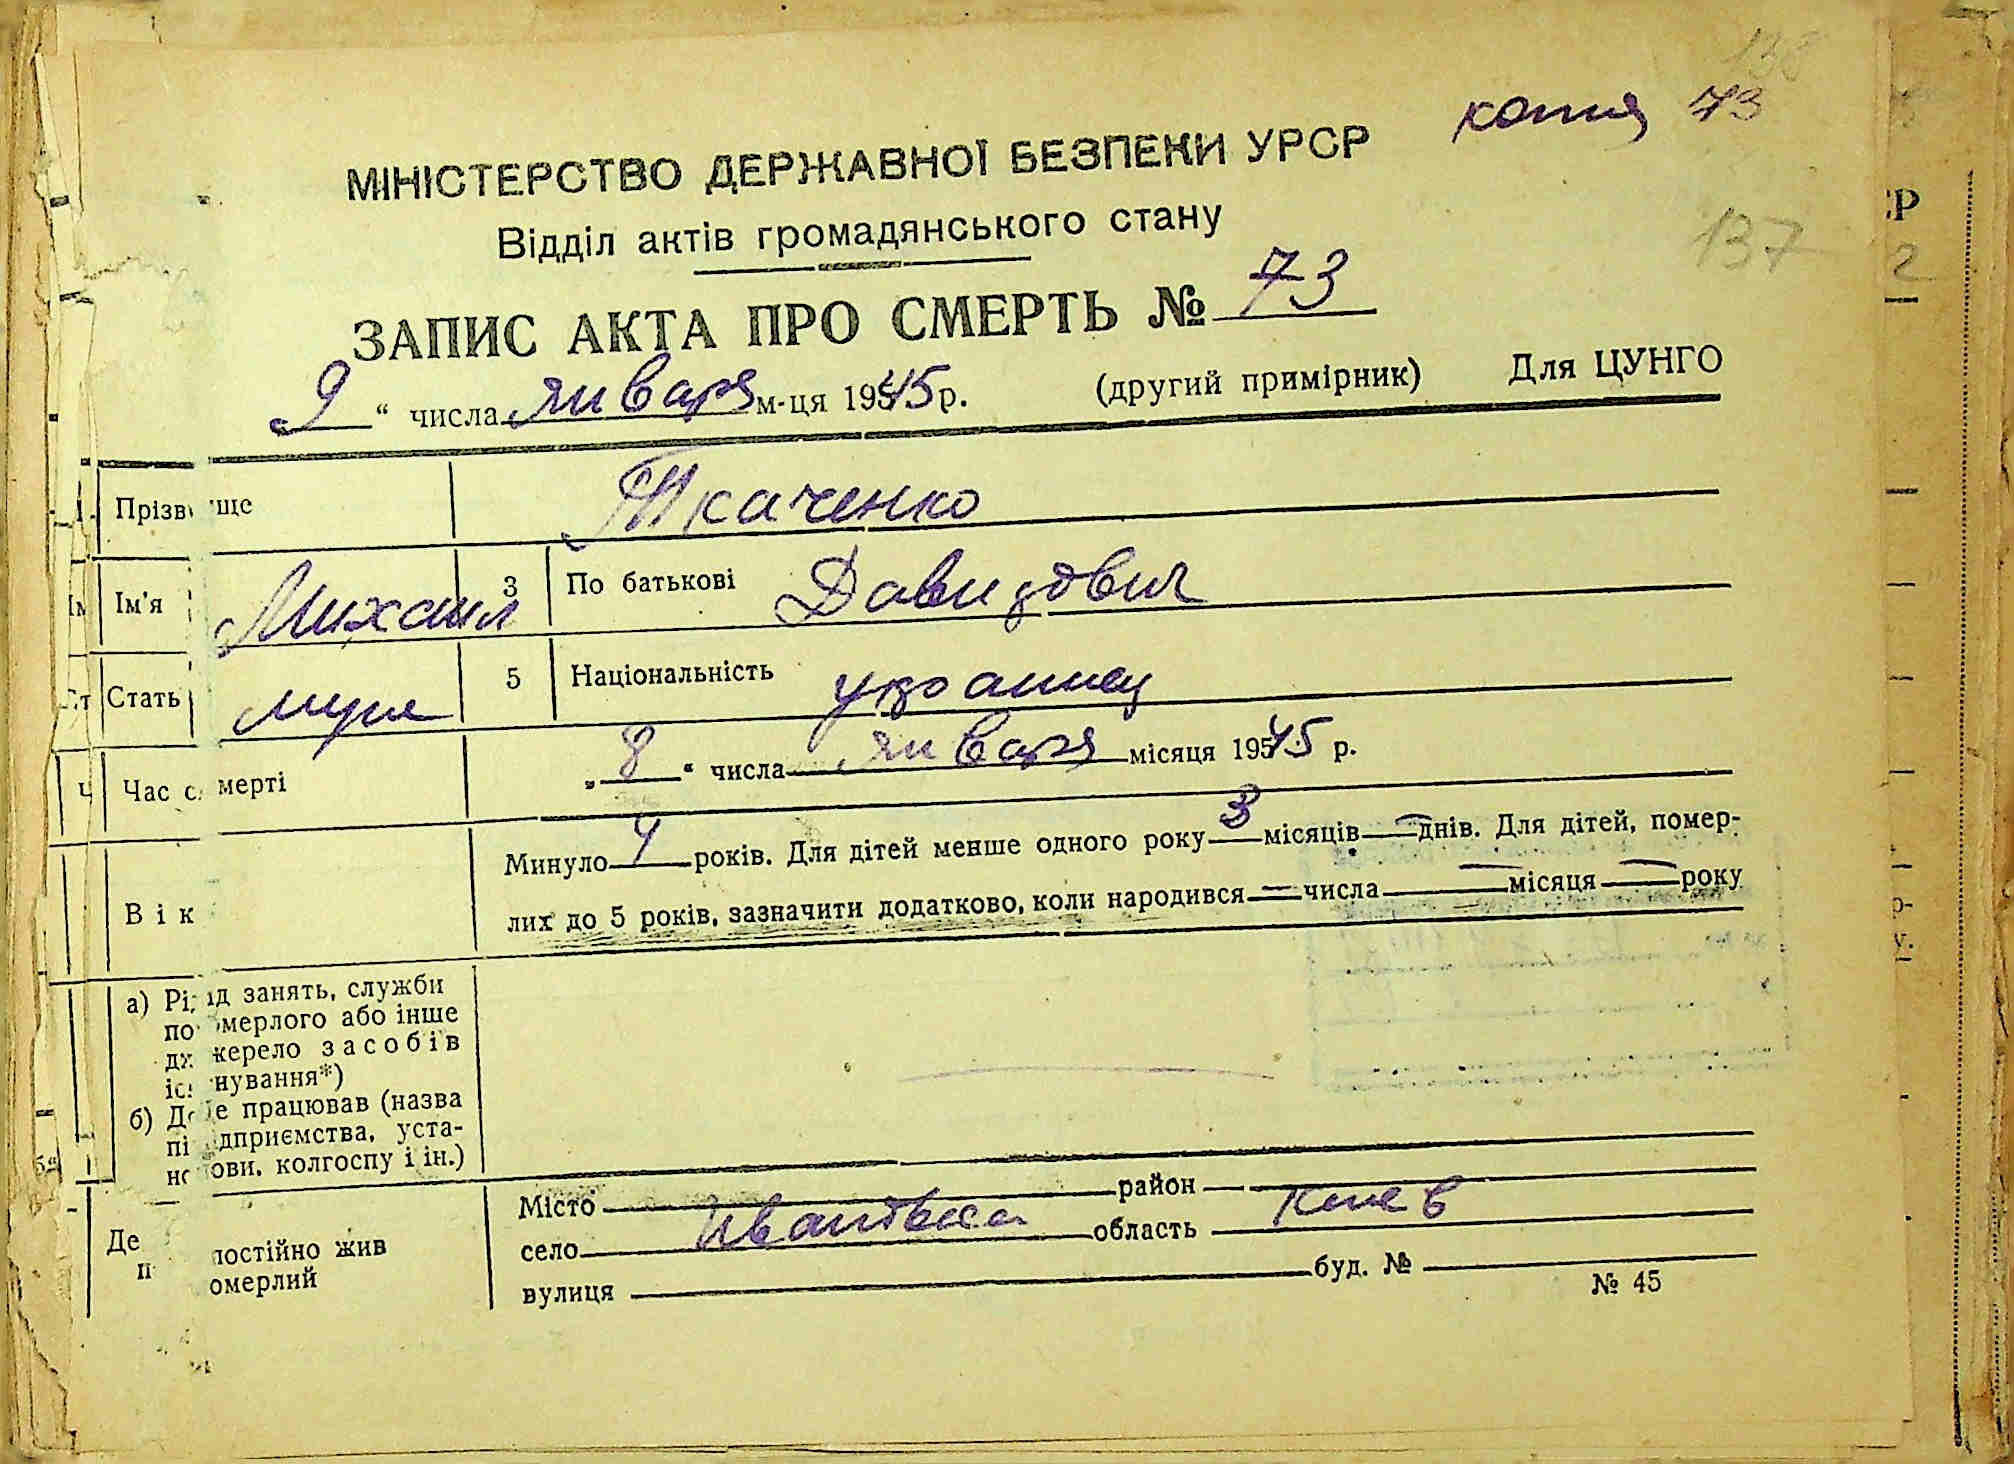 138
копия 73
МІНІСТЕРСТВО ДЕРЖАВНОЇ БЕЗПЕКИ УРСР
Відділ актів громадянського стану
137
ЗАПИС АКТА ПРО СМЕРТЬ № 73
9 “ числа января м-ця 1945 р. (другий примірник) Для ЦУНГО
Прізвище Ткаченко
Ім'я Михаил 3 По батькові Давидович
Стать муж 5 Національність украинец
Час смерті „ 8 “ числа января місяця 1945 р.
Вік Минуло 4 років. Для дітей менше одного року 3 місяців — днів. Для дітей, помер-
лих до 5 років, зазначити додатково, коли народився — числа — місяця — року
а) Рід занять, служби
померлого або інше
джерело засобів
існування*)
б) Де працював (назва
підприємства, уста-
нови, колгоспу і ін.)
Де постійно жив
померлий
Місто район
село Ивановка область Киев
вулиця буд. №
№ 45